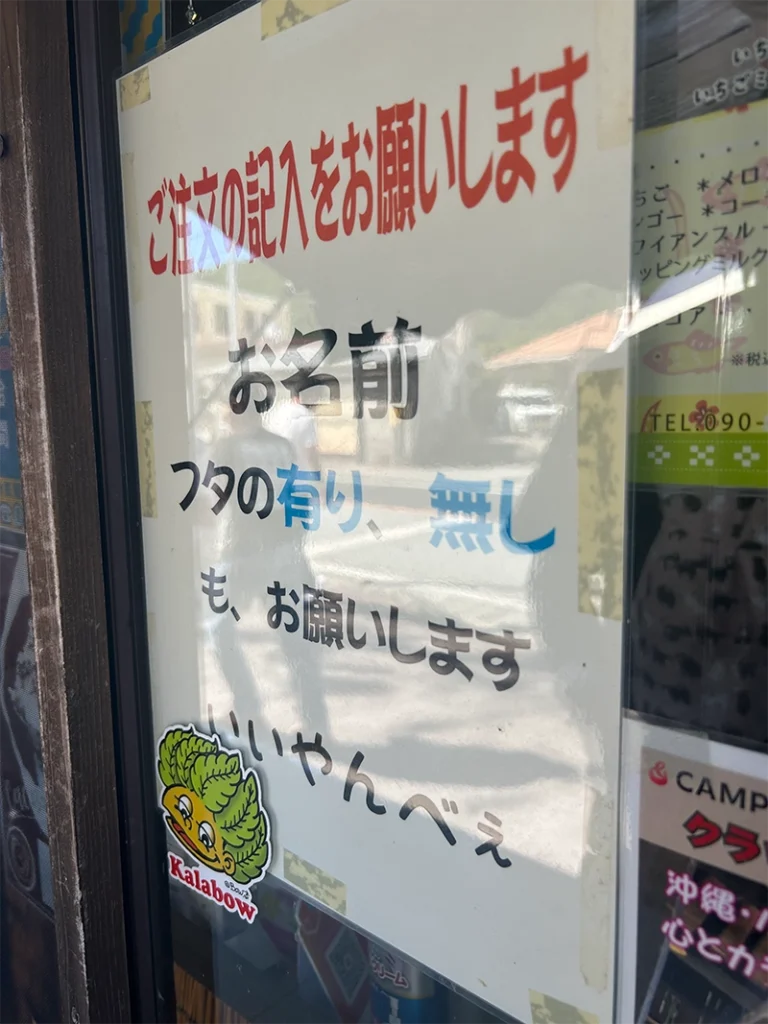 ご注文の記入をお願いします
お名前
フタの有り、 無し
も、お願いします
いいやんべぇ
Kalabow
いちごミ
*メロ
ンゴー *コー
ワイアンブルー
ッピングミルク
コア
※税込
TEL.090-
CAMP
クラ
沖縄・
心とカ